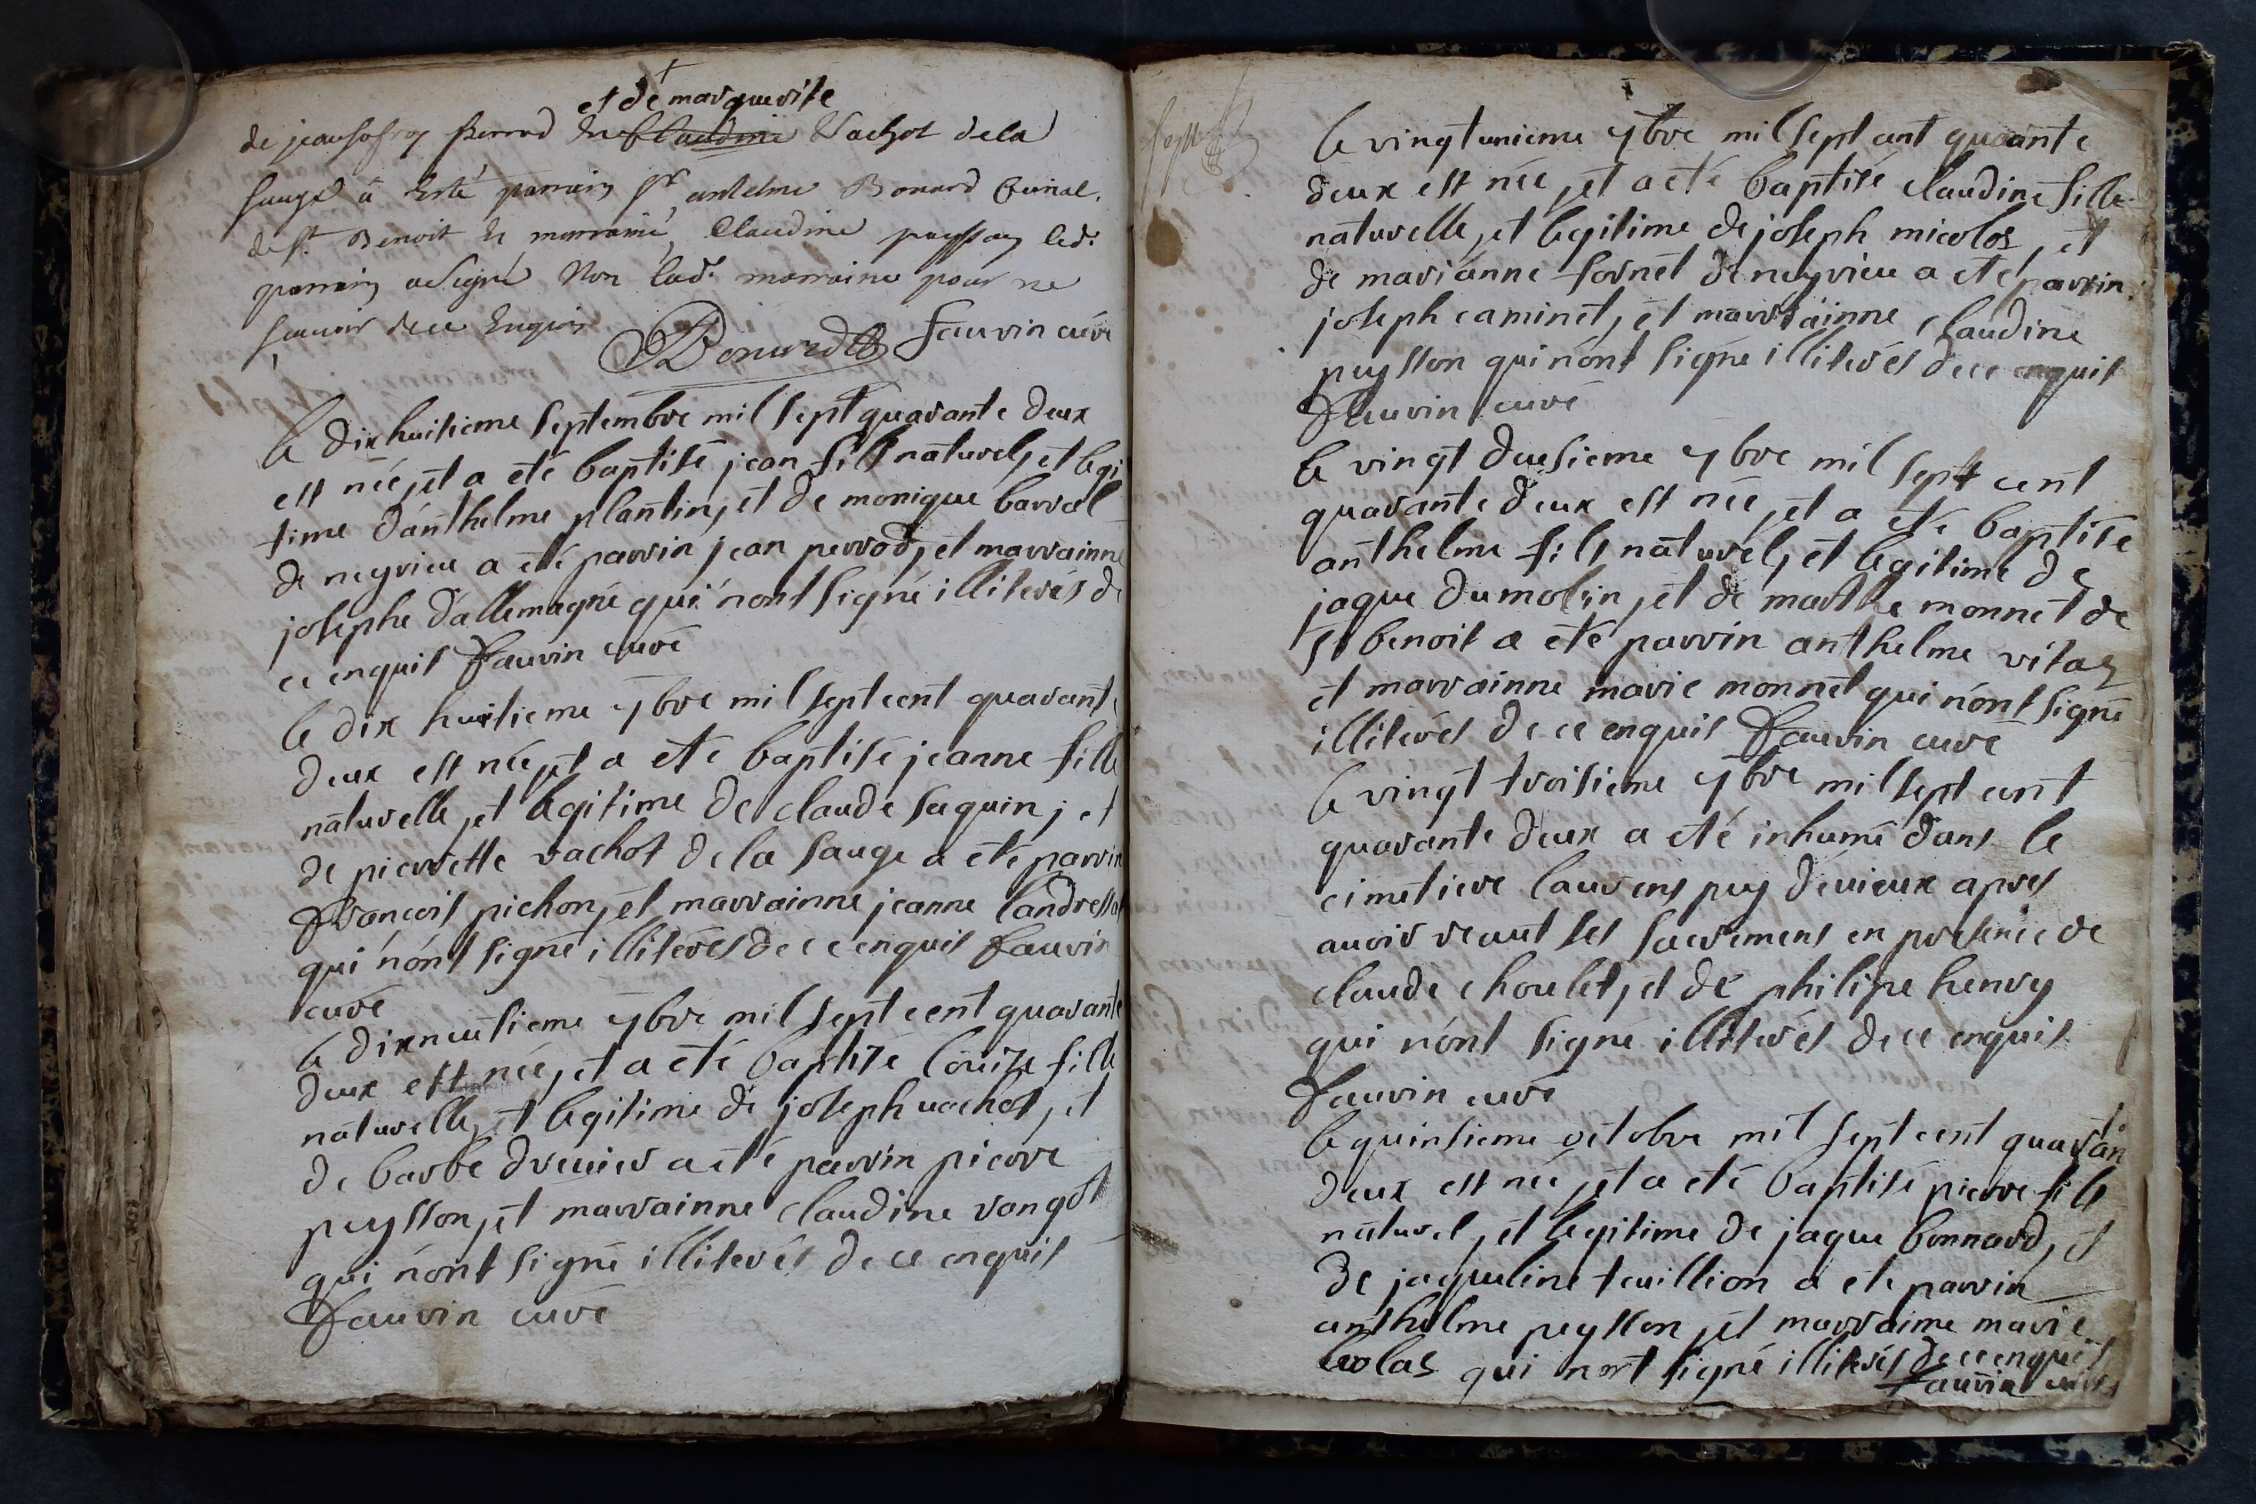 et de marguerite
de jean Perrod Claudine Vachot dela
sauge à Esté parrain Sr antelme Bonard
de St Benoit et marraine Claudine puysson led.
parrain a signé Non lad. marraine pour ne
savoir de ce Enquis
Bonard fauvin curé
le dix huitieme septembre mil sept quarante deux
est née, et a eté baptisé jean fils naturel, et legi
time d'anthelme plantin, et de monique barral
de neyrieu a été parrin jean perrod, et marrainne
josephe dallemagne qui n'ont signé illiterés de
ce enquis fauvin curé
le dix huitieme 7bre mil sept cent quarante
deux est née, et a eté baptisé jeanne fille
naturelle, et legitime de claude saquin, et
de pierrette vachot de la sauge a eté parrin
francois pichon, et marrainne jeanne
qui n'ont signé illiterés de ce enquis fauvin
curé
le dixneufieme 7bre mil sept cent quarante
deux est née, et a eté baptisé louise fille
naturelle, et legitime de joseph vachot, et
de barbe drevier a eté parrin pierre
peysson, et marrainne claudine vangot
qui n'ont signé illiterés de ce enquis
fauvin curé
le vingt unieme 7bre mil sept cent quarante
deux est née, et a eté baptisé claudine fille
naturelle, et legitime de joseph micoloz, et
de marianne fornet de neyrieu a eté parrin
joseph caminet, et marrainne claudine
peysson qui n'ont signé illiterés de ce enquis
fauvin curé
le vingt duesieme 7bre mil sept cent
quarante deux est née, et a eté baptisé
anthelme fils naturel, et legitime de
jaque dumolin, et de marthe monnet de
st benoit a eté parrin anthelme vitoz
et marrainne marie monnet qui n'ont signé
illiterés de ce enquis fauvin curé
le vingt troisieme 7bre mil sept cent
quarante deux a eté inhumé dans le
cimetiere laurens puy d'evieux apres
avoir recut ses sacremens en presence de
claude choulet, et de philipe henry
qui n'ont signé illiterés de ce enquis
fauvin curé
le quinsieme octobre mil sept cent quaran
deux est née, et a eté baptisé pierre fils
naturel, et legitime de jaque bonnard, et
de jaqueline tuillion a eté parrin
anthelme peysson, et marraine marie
qui n'ont signé illiterés de ce enquis
fauvin curé